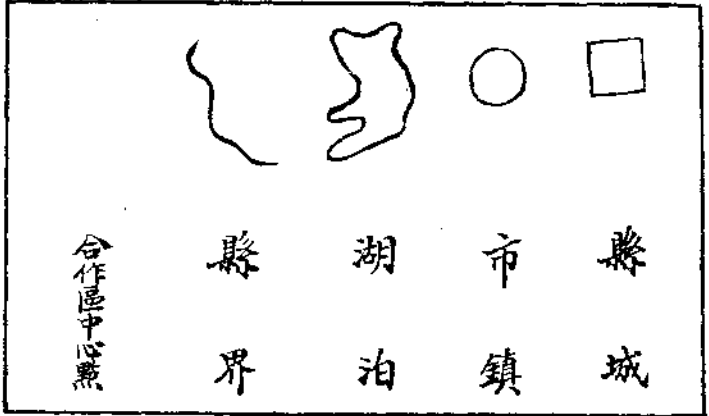 縣城
市鎮
湖泊
縣界
合作區中心點